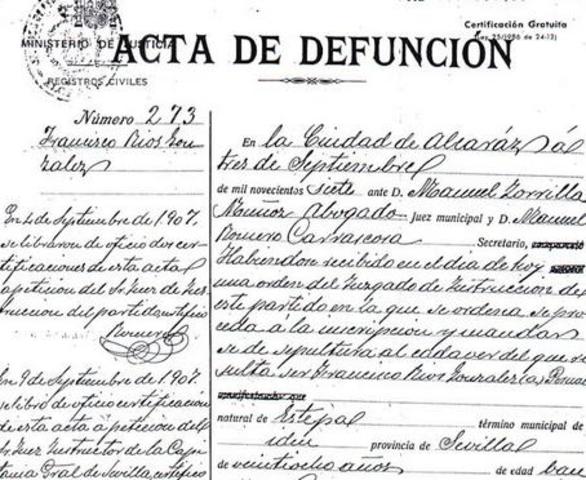 Certificación Gratuita
(Ley 25/1986 de 24-12)
MINISTERIO DE JUSTICIA
REGISTROS CIVILES
ACTA DE DEFUNCIÓN
Número 273
Francisco Rios Gon
zalez
En 4 de Septiembre de 1907.
se libraron de oficio dos cer-
tificaciones de esta acta
a peticion del Sr Juez de Ins
truccion del partido certifico
Romero
En 9 de Septiembre de 1907.
se libró de oficio certificación
de esta acta a peticion del
Sr Juez Instructor de la Capi
tania Gral de Sevilla, certifico
En la Ciudad de Alcaráz á
tres de Septiembre
de mil novecientos siete ante D. Manuel Zorrilla
Muñoz Abogado Juez municipal y D. Manuel
Romero Carrascosa Secretario,
Habiendose recibido en el dia de hoy
una orden del Juzgado de Instruccion de
este partido en la que se ordena se pro
ceda a la inscripcion y mandar
se dé sepultura al cadaver del que re
sulta ser Francisco Rios Gonzalez (a)
natural de Estepa término municipal de
idem provincia de Sevilla
de veintiocho años de edad